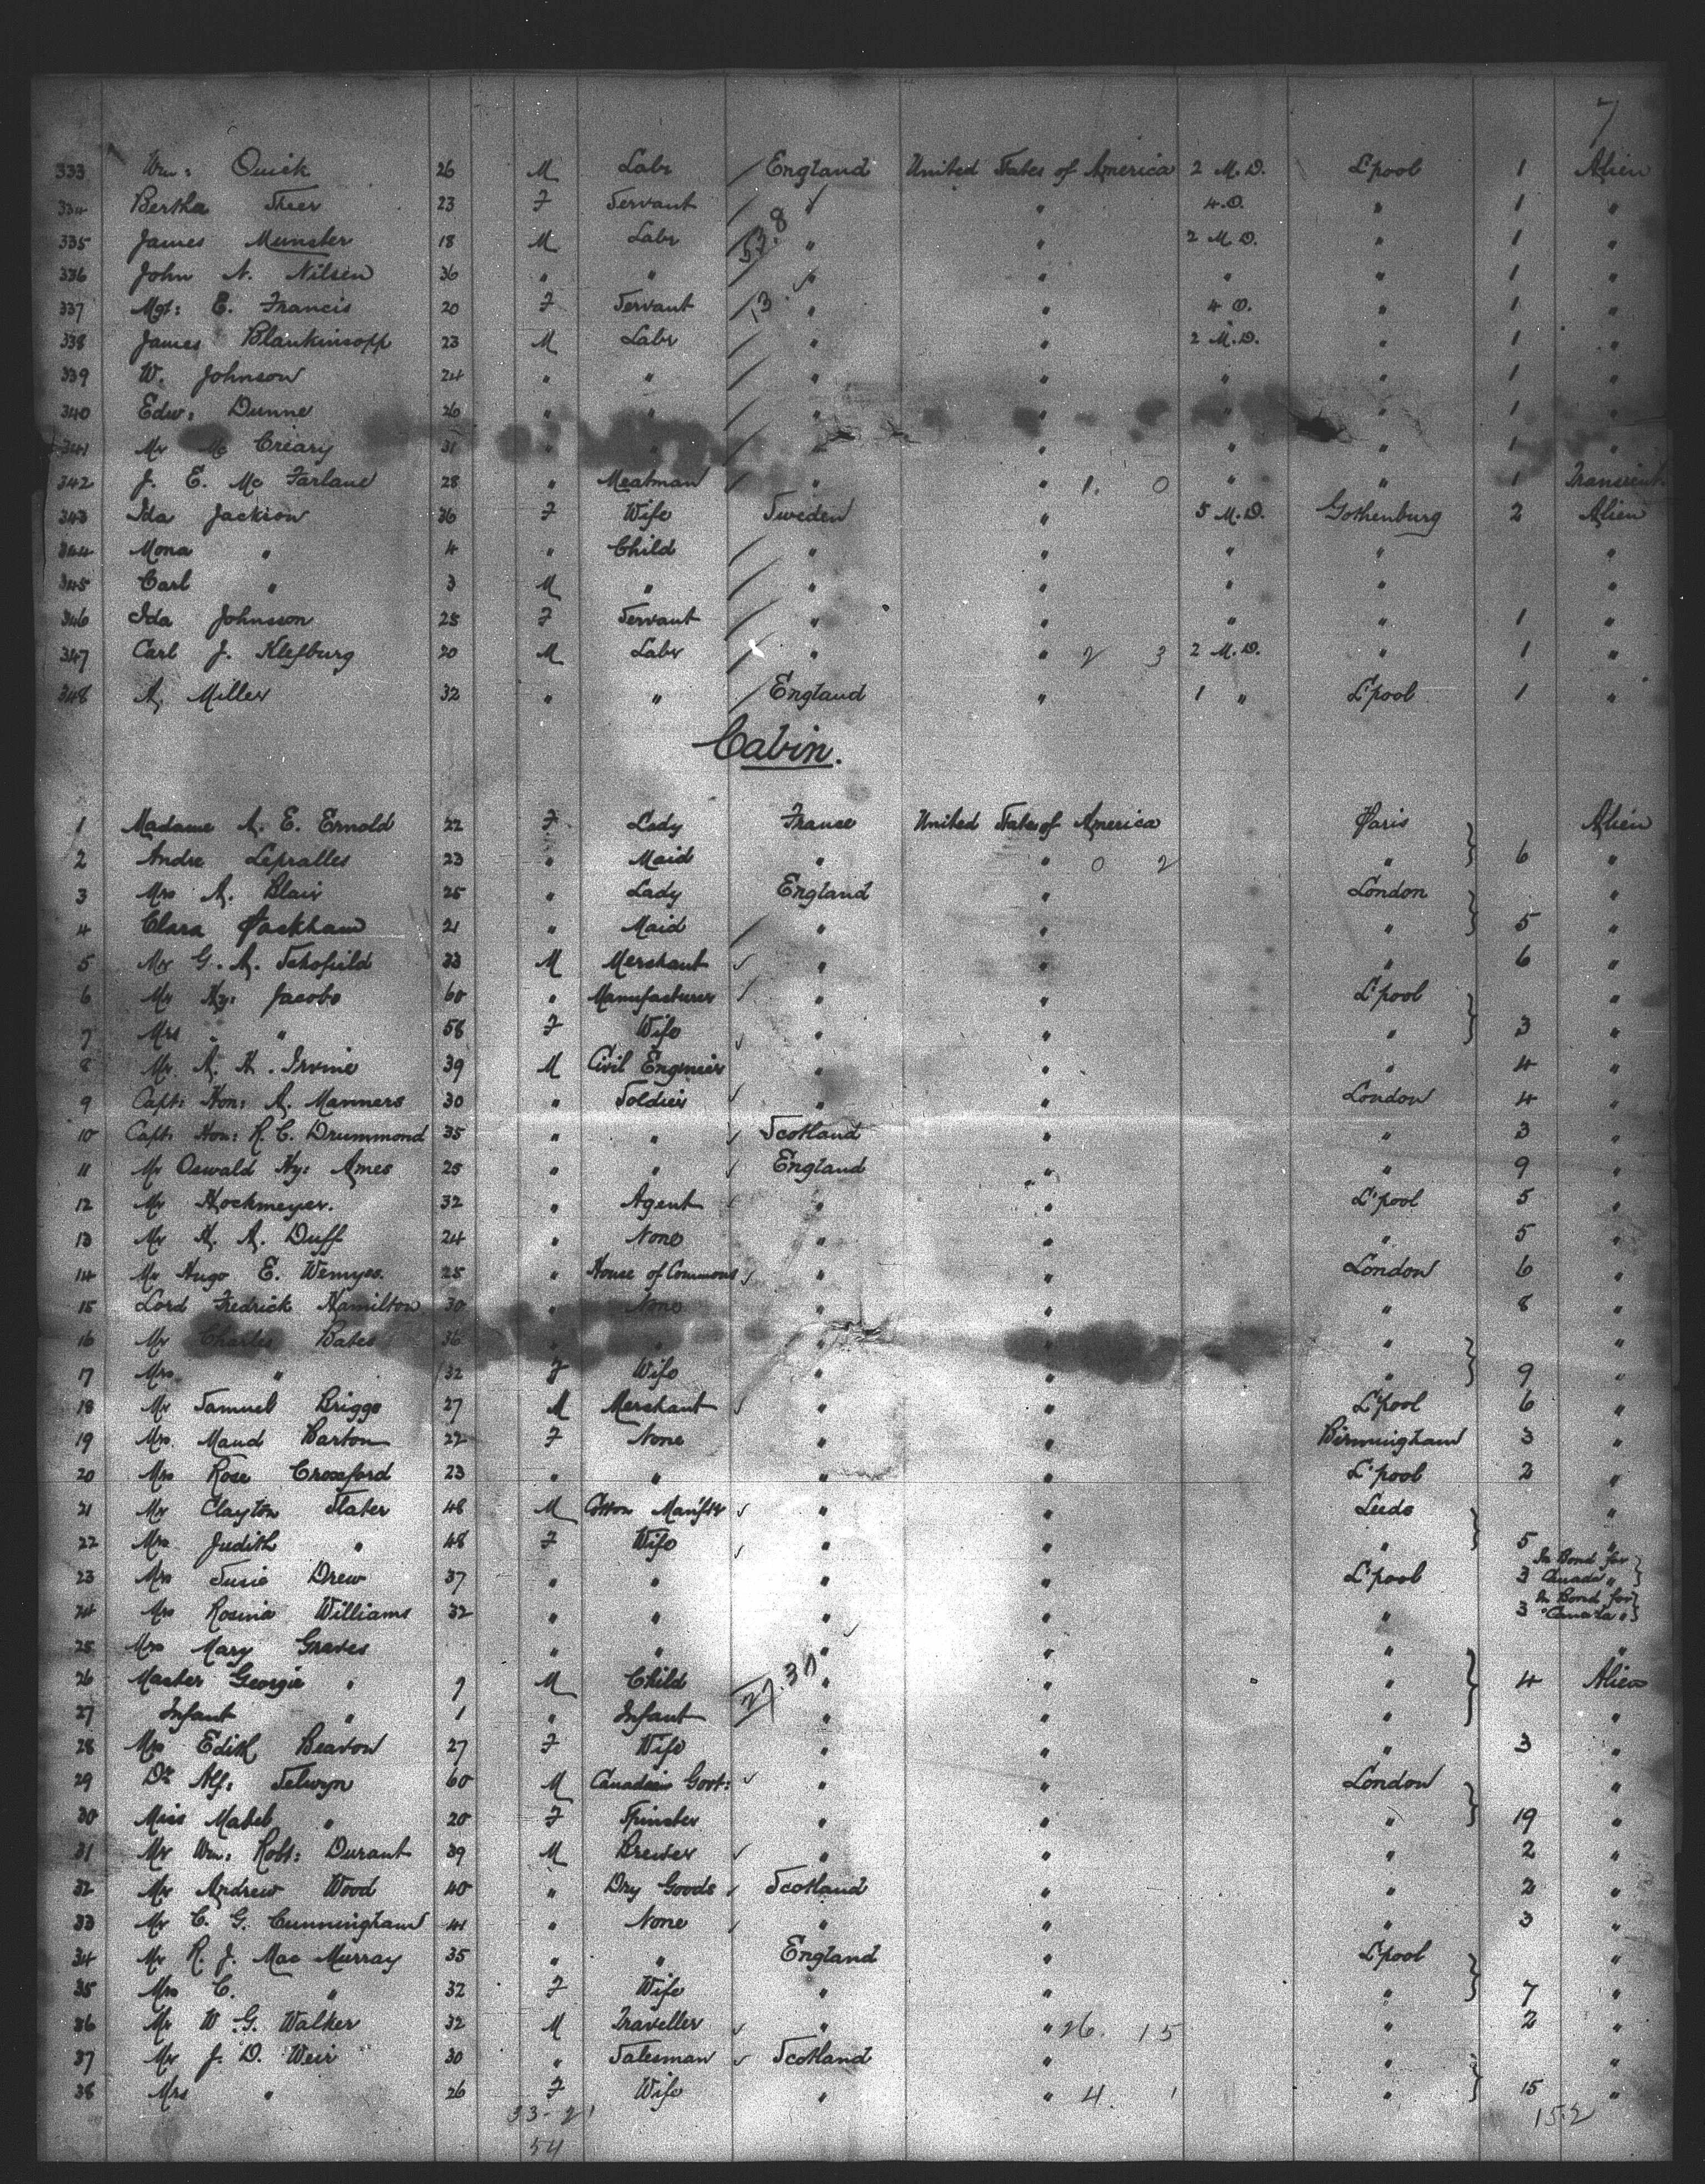 7
333 Wm: Quick 26 M Labr England United States of America 2 M.D. L'pool 1 Alien
334 Bertha 23 F Servant " " 4.O. " 1 "
335 James Munster 18 M Labr 53.8 " " 2 M.D. " 1 "
336 John N. Nilsen 36 " " " " " " 1 "
337 Mgt: E. Francis 20 F Servant 13. " " 4 O. " 1 "
338 James Blankinsopp 23 M Labr " " 2 M.D. " 1 "
339 W. Johnson 24 " " " " " " 1 "
340 Edw: Dunne 26 " " " " " " 1 "
341 Mr Mc Creary 31 " " " " " " 1 "
342 J. E. Mc Farland 28 " Meatman " " 1. 0 " " 1 Transient
343 Ida Jackson 36 F Wife Sweden " 5 M.D. Gothenburg 2 Alien
344 Mona " 4 " Child " " " " "
345 Carl " 3 M " " " " " "
346 Ida Johnsson 25 F Servant " " " " 1 "
347 Carl J. Klefburg 20 M Labr " " 2 3 2 M.D. " 1 "
348 A. Miller 32 " " England " 1 " L'pool 1 "
Cabin.
1 Madame A. E. Ernold 22 F Lady France United States of America Paris Alien
2 Andre Lepralles 23 " Maid " " 0 2 " 6 "
3 Mrs A. Blair 25 " Lady England " London "
4 Clara Packham 21 " Maid " " " 5 "
5 Mr G. A. Schofield 33 M Merchant " " " 6 "
6 Mr Hy: Jacobs 60 " Manufacturer " " L'pool "
7 Mrs " " 58 F Wife " " " 3 "
8 Mr A. H. Irvine 39 M Civil Engineer " " " 4 "
9 Capt: Hon: A. Manners 30 " Soldier " " London 4 "
10 Capt: Hon: R. C. Drummond 35 " " Scotland " " 3 "
11 Mr Oswald Hy: Ames 25 " " England " " 9 "
12 Mr Hockmeyer. 32 " Agent " " L'pool 5 "
13 Mr A. A. Duff 24 " None " " " 5 "
14 Mr Hugo E. Wemyss. 25 " House of Commons " " London 6 "
15 Lord Fredrick Hamilton 30 " None " " " 8 "
16 Mr Charles Bates 36 " " " " " "
17 Mrs " 32 F Wife " " " 9 "
18 Mr Samuel Briggs 27 M Merchant " " L'pool 6 "
19 Mrs Maud Barton 22 F None " " Birmingham 3 "
20 Mrs Rose Crossford 23 " " " " L'pool 2 "
21 Mr Clayton Slater 48 M Cotton Manftr " " Leeds "
22 Mrs Judith " 48 F Wife " " " 5 "
23 Mrs Susie Drew 37 " " " " L'pool 3 In Bond for Canada "
24 Mrs Rosina Williams 32 " " " " " 3 In Bond for Canada "
25 Mrs Mary Graves " " " " " "
26 Master Georgie " 7 M Child 27.30 " " " 4 Alien
27 Infant " 1 " Infant " " " "
28 Mrs Edith Beavon 27 F Wife " " " 3 "
29 Dr Alf: Selwyn 60 M Canadian Govt: " " London "
30 Miss Mabel " 20 F Spinster " " " 19 "
31 Mr Wm: Robt: Durant 39 M Brewer " " " 2 "
32 Mr Andrew Wood 40 " Dry Goods Scotland " " 2 "
33 Mr C. G. Cunningham 41 " None " " " 3 "
34 Mr R. J. Mac Murray 35 " " England " L'pool "
35 Mrs C. " 32 F Wife " " " 7 "
36 Mr W. G. Walker 32 M Traveller " " 26. 15 " 2 "
37 Mr J. D. Weir 30 " Salesman Scotland " " "
38 Mrs " 26 F Wife " " 4. 1 " 15 "
33-21 152
54